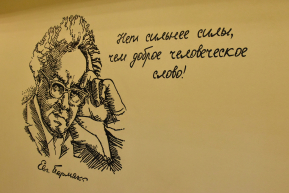 Нет сильнее силы,
чем доброе человеческое
слово!
Евг.